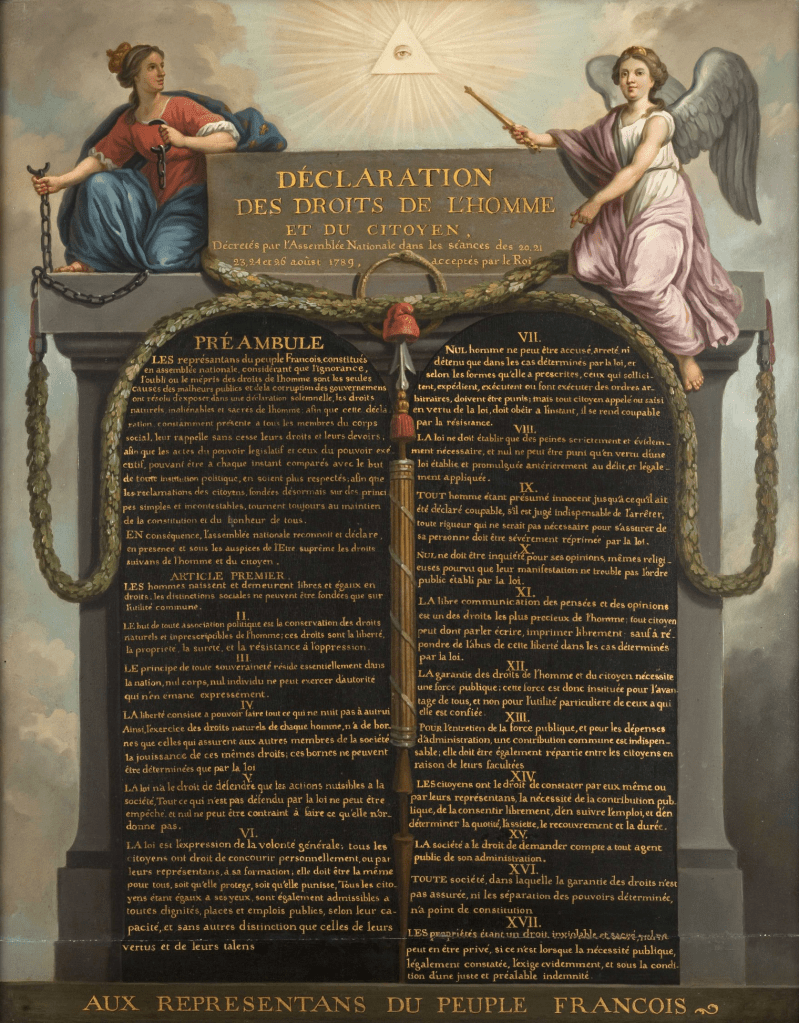 DÉCLARATION
DES DROITS DE L'HOMME
ET DU CITOYEN,
Décretés par l'Assemblée Nationale dans les séances des 20, 21
23, 24 et 26 aoûst 1789, acceptés par le Roi
PRÉAMBULE
LES représantans du peuple Francois, constitués
en assemblée nationale, considérant que l'ignorance,
l'oubli ou le mépris des droits de l'homme sont les seules
causes des malheurs publics et de la corruption des gouvernemens
ont résolu d'exposer dans une déclaration solemnelle, les droits
naturels, inaliénables et sacrés de l'homme, afin que cette décla
ration, constamment présente a tous les membres du corps
social, leur rappelle sans cesse leurs droits et leurs devoirs,
afin que les actes du pouvoir legislatif et ceux du pouvoir exé
cutif, pouvant être a chaque instant comparés avec le but
de toute institution politique, en soient plus respectés; afin que
les reclamations des citoyens, fondées désormais sur des princi
pes simples et incontestables, tournent toujours au maintien
de la constitution et du bonheur de tous.
EN conséquence, l'assemblée nationale reconnoit et déclare,
en presence et sous les auspices de l'Etre suprême les droits
suivans de l'homme et du citoyen.
ARTICLE PREMIER.
LES hommes naissent et demeurent libres et égaux en
droits, les distinctions sociales ne peuvent être fondées que sur
l'utilité commune.
II.
LE but de toute association politique est la conservation des droits
naturels et inprescripibles de l'homme; ces droits sont la liberté,
la propriete, la sureté, et la résistance à l'oppression.
III
LE principe de toute souveraineté réside essentiellement dans
la nation, nul corps, nul individu ne peut exercer d'autorité
qui n'en emane expressément.
IV
LA liberté consiste a pouvoir faire tout ce qui ne nuit pas à autrui
Ainsi, l'exercice des droits naturels de chaque homme, n'a de bor-
nes que celles qui assurent aux autres membres de la société
la jouissance de ces mêmes droits; ces bornes ne peuvent
être déterminées que par la loi
V.
LA loi n'a le droit de défendre que les actions nuisibles a la
société, Tout ce qui n'est pas défendu par la loi ne peut être
empêché, et nul ne peut être contraint à faire ce qu'elle n'or-
donne pas.
VI.
LA loi est l'expression de la volonté générale; tous les
citoyens ont droit de concourir personnellement, ou par
leurs représentans, à sa formation; elle doit être la même
pour tous, soit qu'elle protege, soit qu'elle punisse, Tous les cito
yens étant égaux à ses yeux, sont également admissibles a
toutes dignités, places et emplois publics, selon leur ca-
pacité, et sans autres distinction que celles de leurs
vertus et de leurs talens
VII.
NUL homme ne peut être accusé, arreté, ni
détenu que dans les cas déterminés par la loi, et
selon les formes qu'elle a prescrites, ceux qui sollici-
tent, expédient, exécutent ou font exécuter des ordres ar-
bitraires, doivent être punis; mais tout citoyen appelé ou saisi
en vertu de la loi, doit obéir a l'instant, il se rend coupable
par la résistance.
VIII.
LA loi ne doit établir que des peines strictement et évidem-
ment nécessaire, et nul ne peut être puni qu'en vertu d'une
loi établie et promulguée antérierement au délit, et légale-
ment appliquée.
IX.
TOUT homme étant présumé innocent jusqu'à ce qu'il ait
été déclaré coupable, s'il est jugé indispensable de l'arrêter,
toute rigueur qui ne serait pas nécessaire pour s'assurer de
sa personne doit être sévèrement réprimée par la loi.
X.
NUL ne doit être inquiété pour ses opinions, mêmes religi-
euses pourvu que leur manifestation ne trouble pas l'ordre
public établi par la loi.
XI.
LA libre communication des pensées et des opinions
est un des droits les plus precieux de l'homme; tout citoyen
peut dont parler écrire, imprimer librement: sauf à ré-
pondre de l'abus de cette liberté dans les cas déterminés
par la loi.
XII.
LA garantie des droits de l'homme et du citoyen nécessite
une force publique; cette force est donc instituée pour l'avan-
tage de tous, et non pour l'utilité particuliere de ceux a qui
elle est confiée.
XIII.
POUR l'entretien de la force publique, et pour les dépenses
d'administration, une contribution commune est indispen-
sable; elle doit être également répartie entre les citoyens en
raison de leurs facultées
XIV.
LES citoyens ont le droit de constater par eux même ou
par leurs représentans, la nécessité de la contribution pub-
lique, de la consentir librement, d'en suivre l'emploi, et d'en
déterminer la quotité, l'assiette, le recouvrement et la durée.
XV.
LA société a le droit de demander compte a tout agent
public de son administration.
XVI.
TOUTE société, dans laquelle la garantie des droits n'est
pas assurée, ni les séparation des pouvoirs déterminée,
n'a point de constitution
XVII.
LES propriétés étant un droit inviolable et sacré, nul ne
peut en être privé, si ce n'est lorsque la nécessité publique,
légalement constatée, l'exige evidemment, et sous la condi
tion d'une juste et préalable indemnité
AUX REPRESENTANS DU PEUPLE FRANCOIS